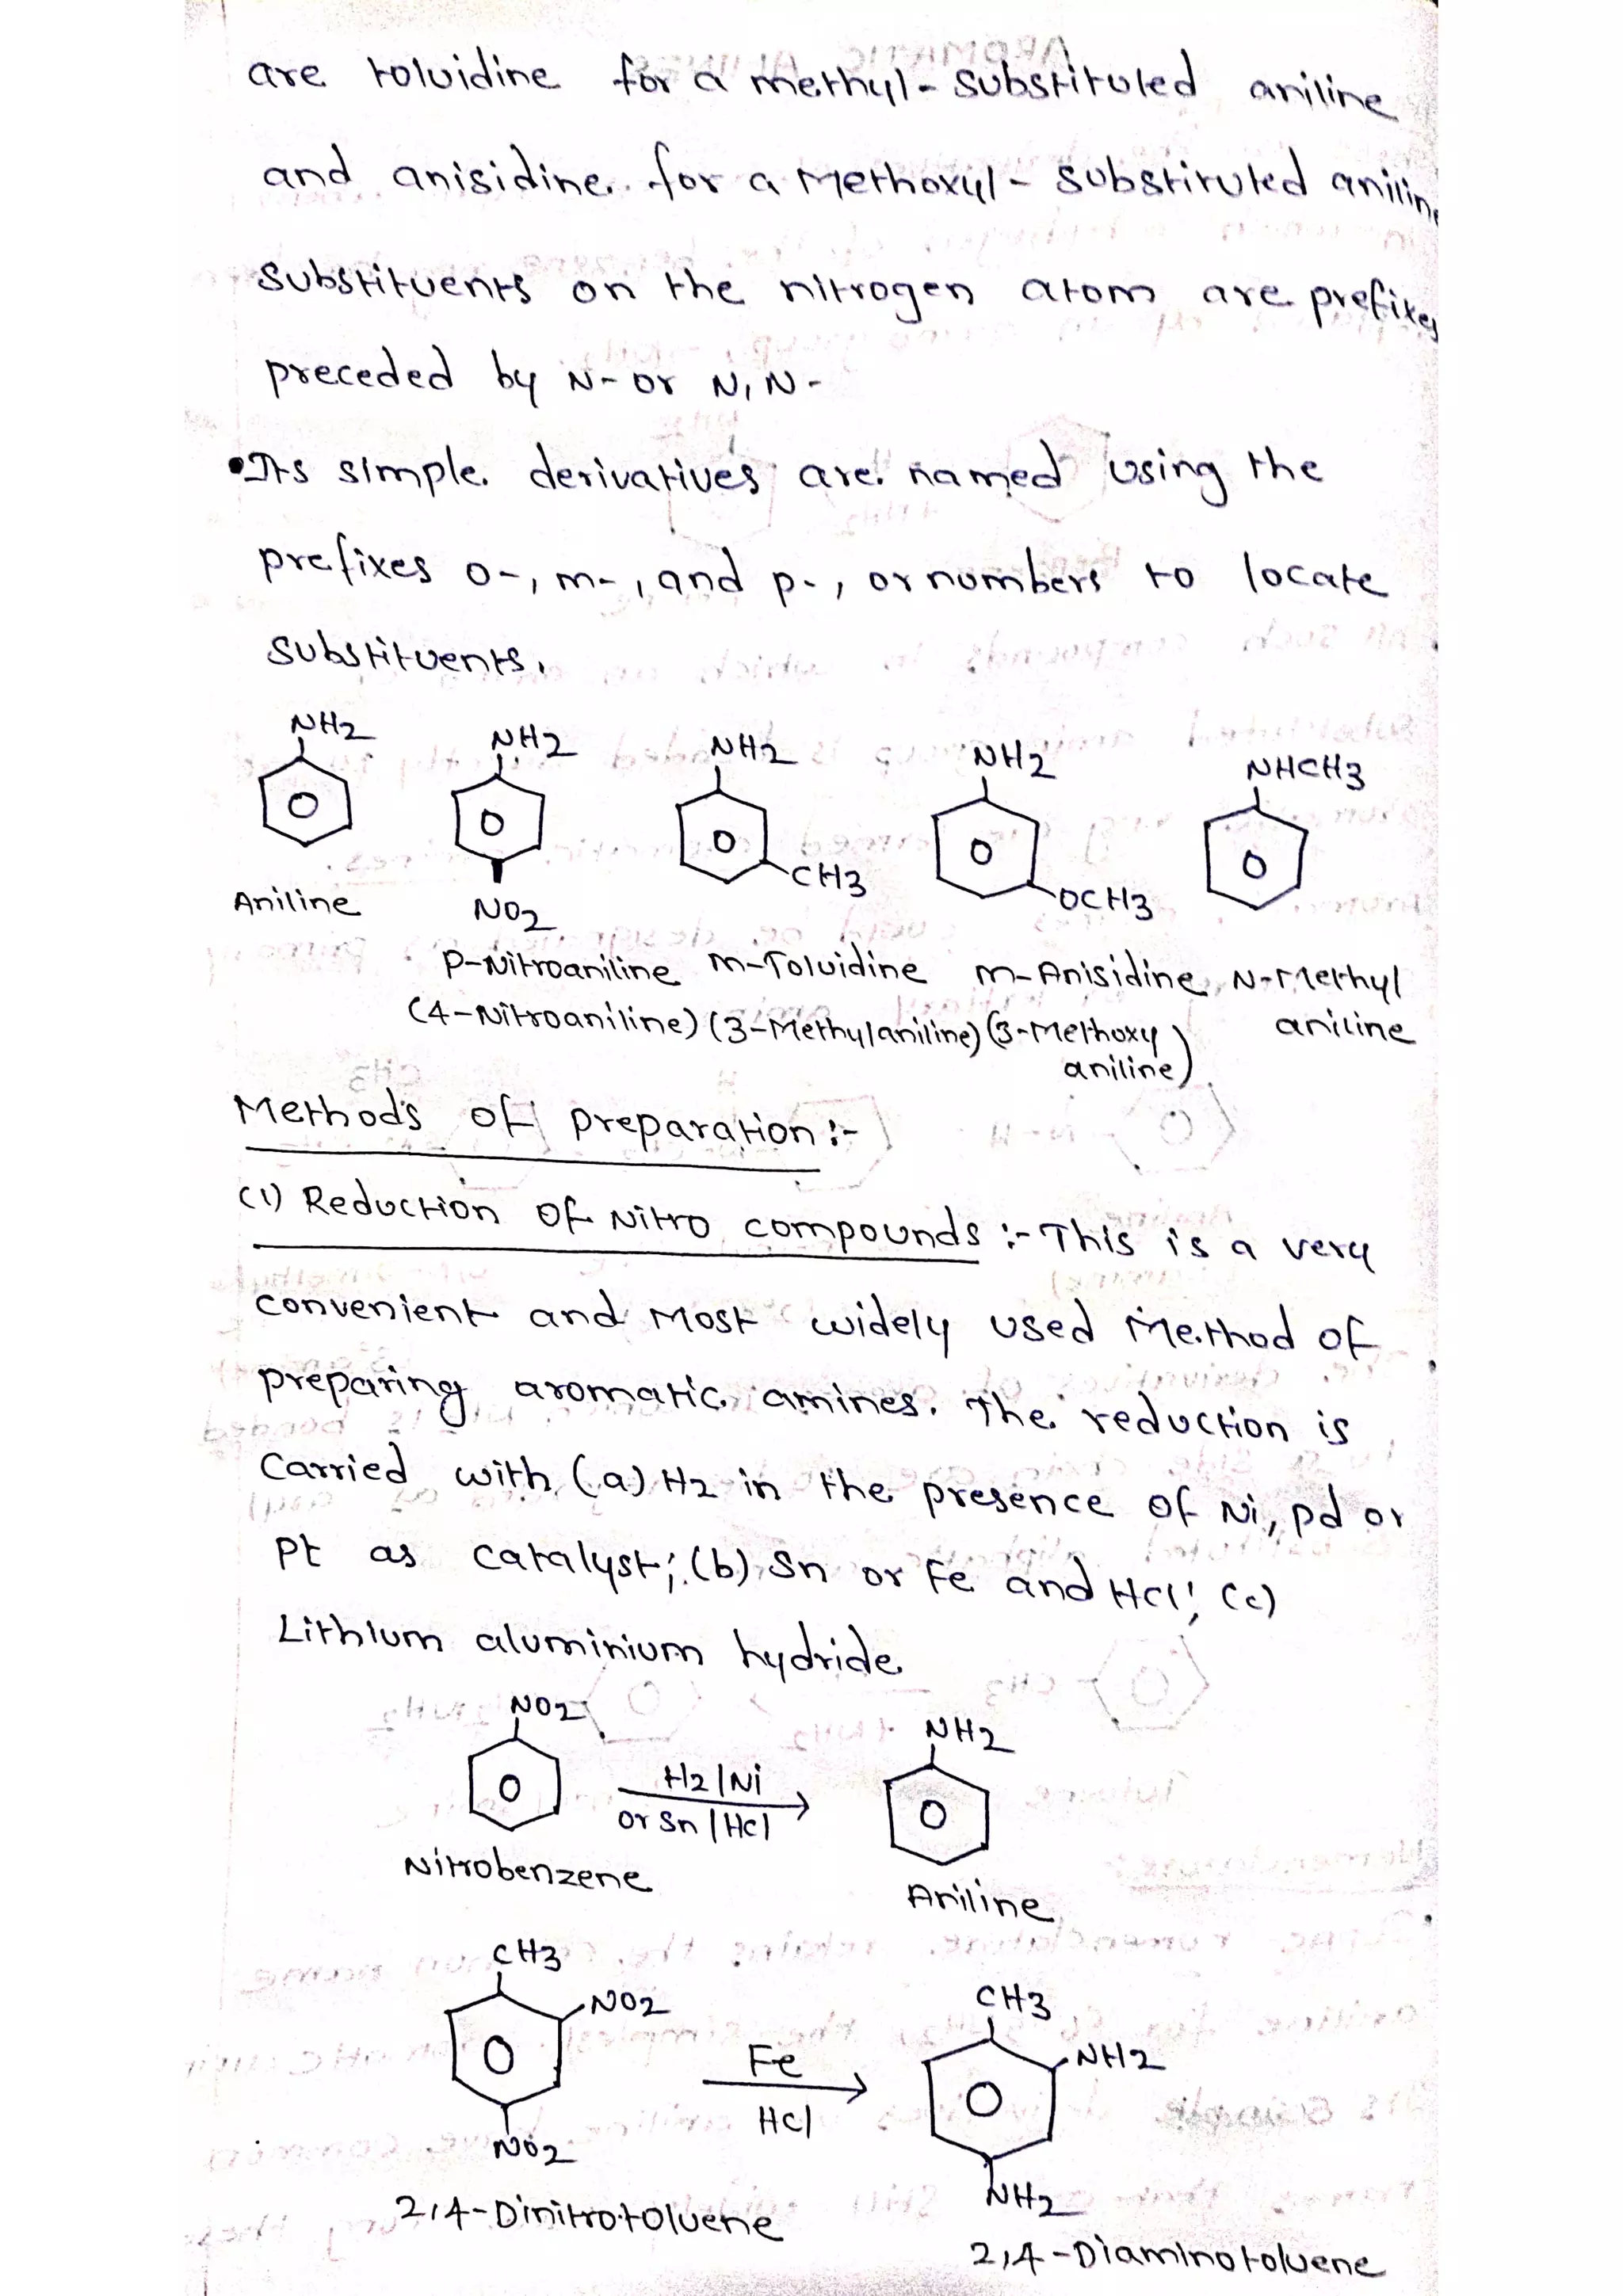 are toluidine for a methyl-substituted aniline
and anisidine for a Methoxyl- substituted aniline
substituents on the nitrogen atom are prefixes
preceded by N- or N,N-
•Its simple derivatives are named using the
prefixes o-, m-, and p-, or numbers to locate
substituents.
NH2 NH2 NH2 NH2 NHCH3
CH3 OCH3
Aniline NO2
P-Nitroaniline m-Toluidine m-Anisidine N-Methyl
(4-Nitroaniline) (3-Methylaniline) (3-Methoxy aniline
aniline)
Methods of preparation :-
(1) Reduction of Nitro compounds :- This is a very
convenient and Most widely used Method of
preparing aromatic amines. The reduction is
Carried with (a) H2 in the presence of Ni, pd or
Pt as catalyst; (b) Sn or Fe and HCl; (c)
Lithium aluminium hydride
NO2 NH2
H2/Ni
or Sn/HCl
Nitrobenzene
Aniline
CH3
NO2 CH3
Fe NH2
HCl
NO2
NH2
2,4-Dinitrotoluene
2,4-Diaminotoluene